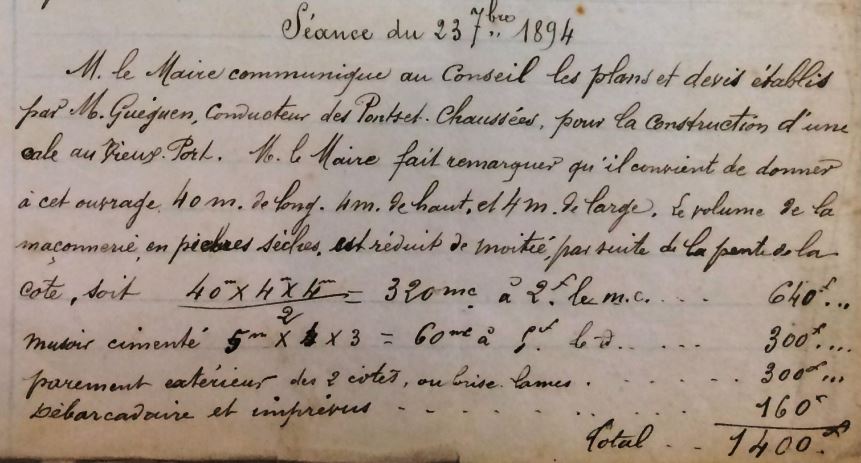 Séance du 23 7bre 1894
M. le Maire communique au Conseil les plans et devis établis
par M. Guéguen, Conducteur des Ponts et Chaussées, pour la construction d'une
cale au Vieux-Port. M. le Maire fait remarquer qu'il convient de donner
à cet ouvrage 40 m. de long. 4 m. de haut, et 4 m. de large. Le volume de la
maçonnerie, en pierres sèches, est réduit de moitié, par suite de la pente de la
côte, soit 40m × 4m × 4m / 2 = 320mc à 2f. le m.c. .... 640f...
musoir cimenté 5m × 4 × 3 = 60mc à 5f. le d° ..... 300f...
parement extérieur des 2 côtés, ou brise-lames . . . . . . 300f...
Débarcadaire et imprévus - - - . . . . . 160f
Total . . . 1400.f